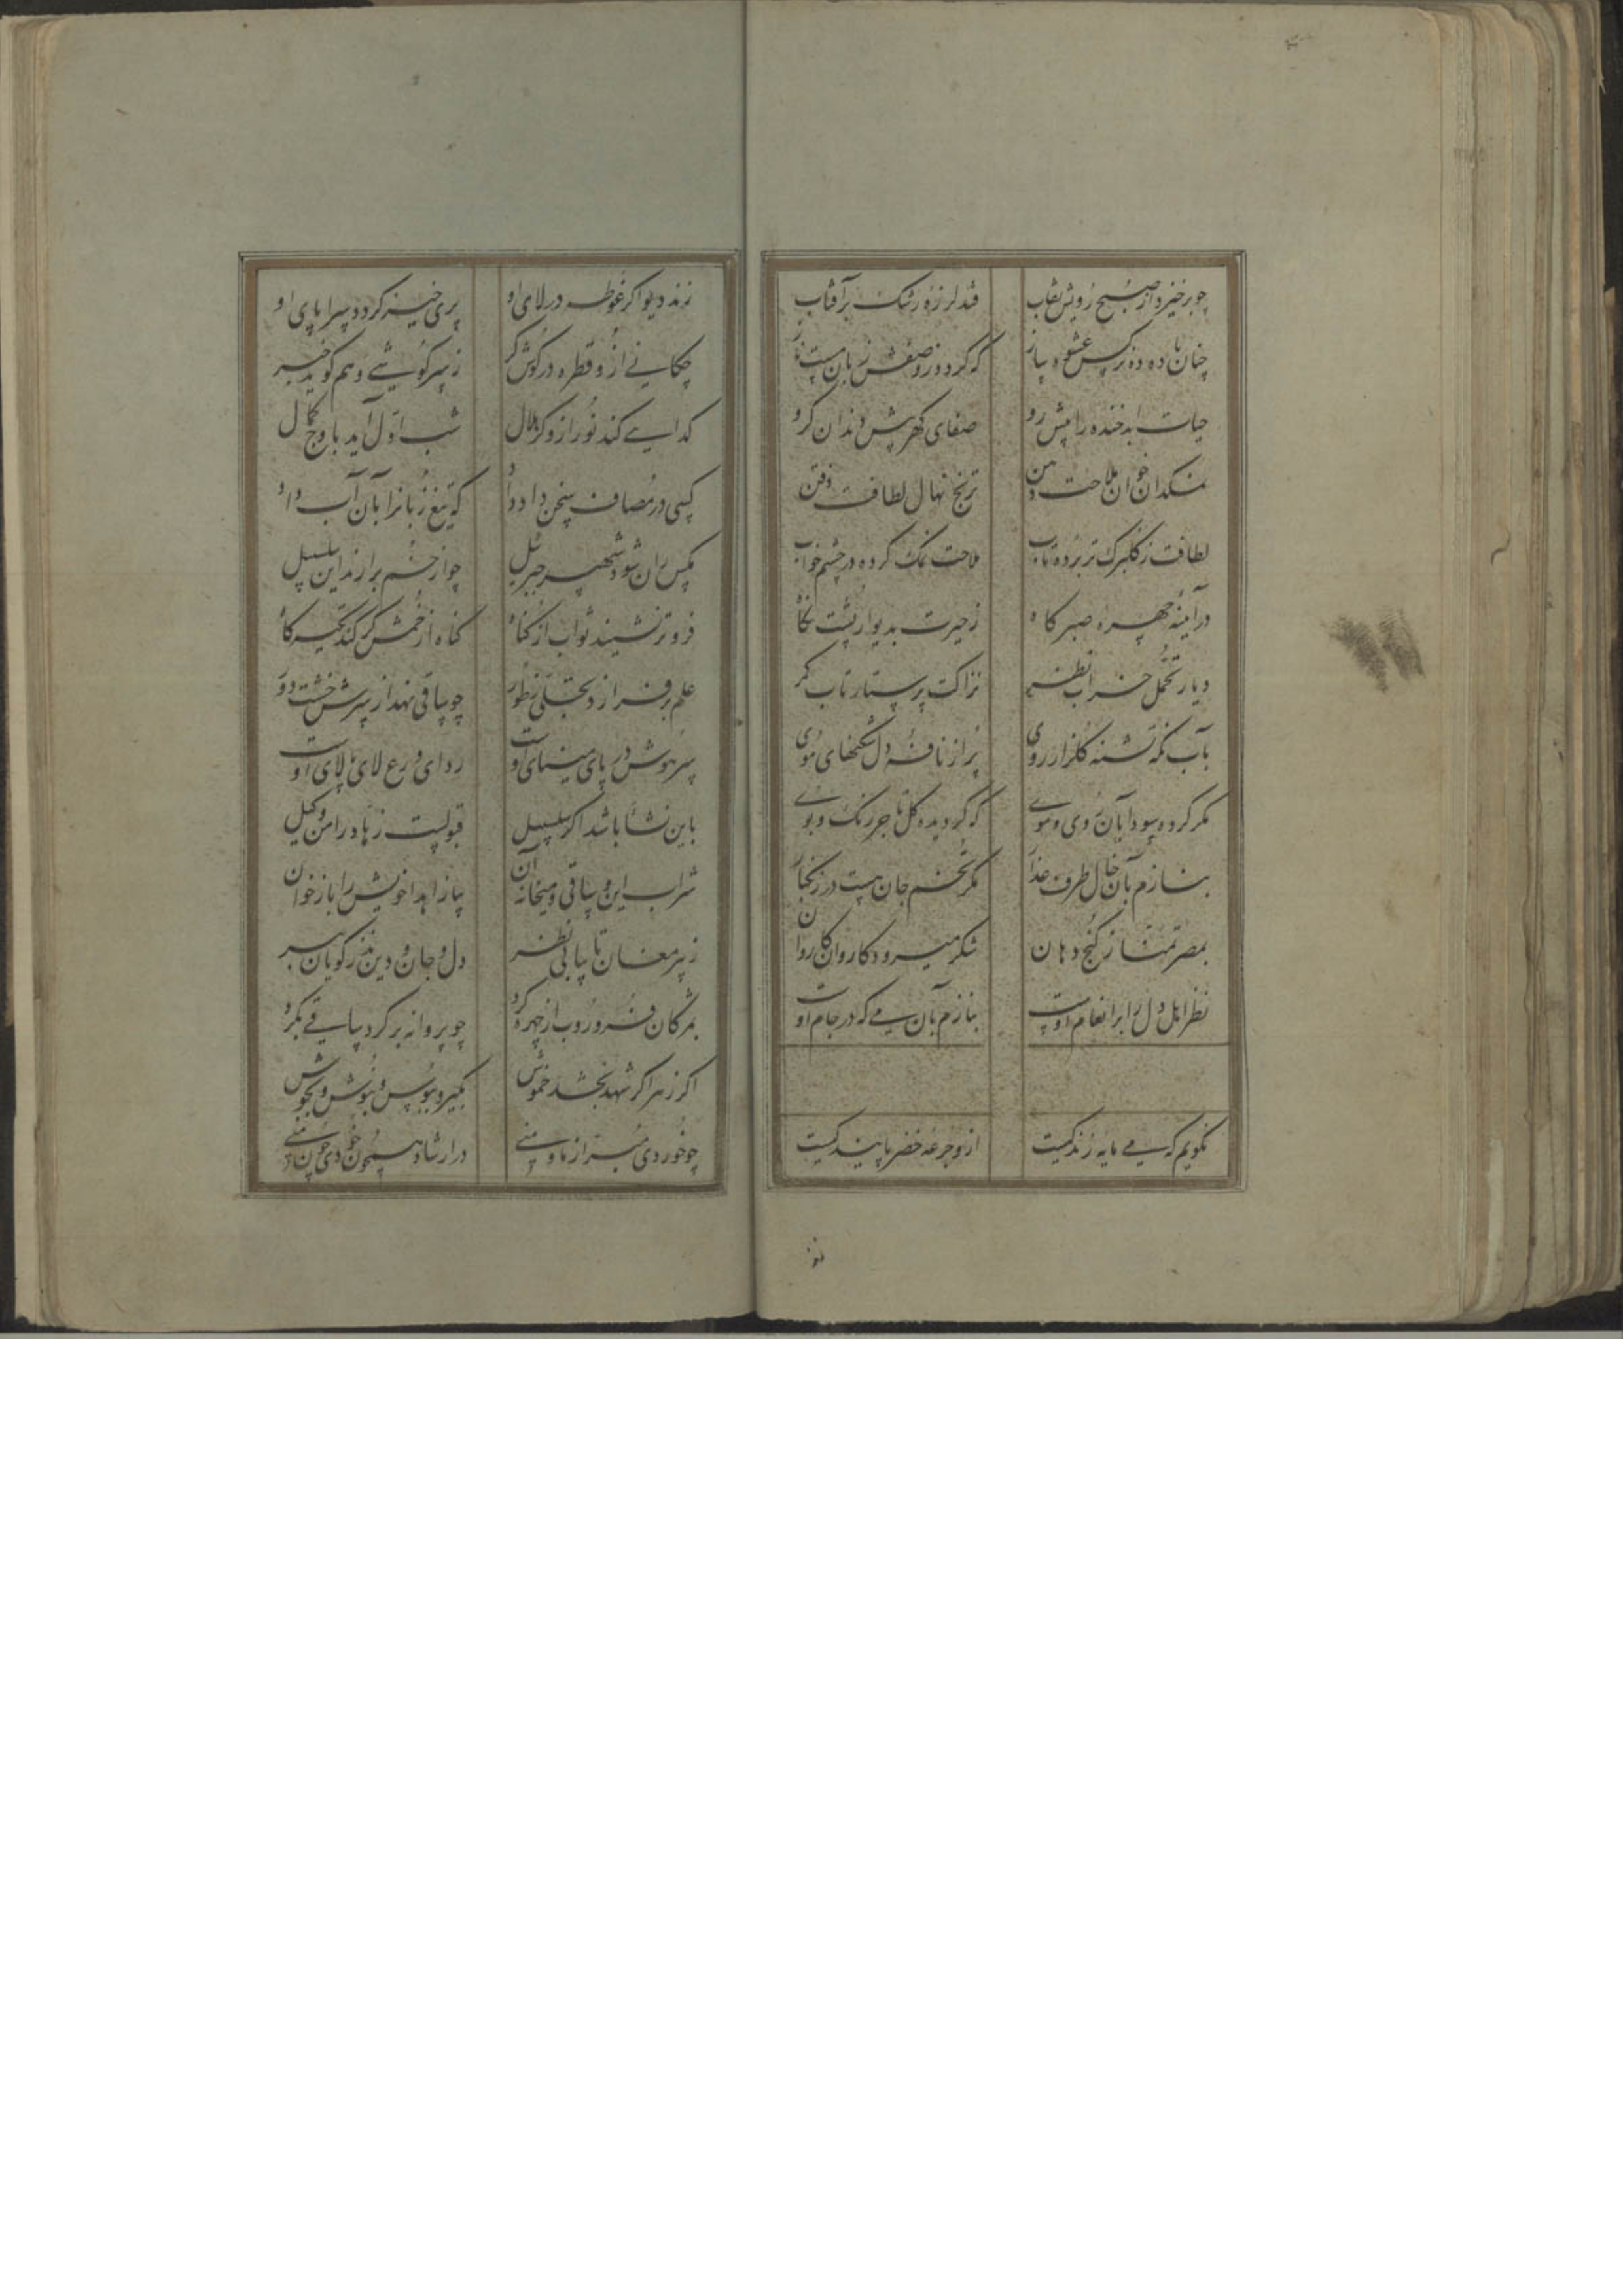 چو برخیزد از صبح رویش نقاب
فتد لرزهٔ رشک بر آفتاب
چنان باده ده نرگس عشوه ساز
که گردد ز وصفش زبان مست ناز
حیات ابد خنده را پیش رو
صفای گهر پیش دندان گرو
نمکدان خوان ملاحت دهن
ترنج نهال لطافت ذقن
لطافت ز گلبرک تر برده تاب
ملاحت نمک کرده در چشم خواب
در آینهٔ چهره صبر کاه
ز حیرت بدیوار پشت نگاه
دیار تحمل خراب نظر
نزاکت پرستار تاب کمر
بآب نگه تشنه گلزار روی
پر از نافهٔ دل شکنهای موی
مگر کرده سودا بآن روی و موی
که گردیده گل تاجر رنگ و بوی
بنازم بآن خال طرف عذار
مگر تخم جان هست در زنگبار
بمصر تمنا ز کنج دهان
شکر میرود کاروان کاروان
نظر اهل دل را بر انعام اوست
بنازم بآن می که در جام اوست
نگویم که می مایه زندگیست
ازو جرعه خضر پایندگیست
زند دیو اگر غوطه در لای او
پری خیز گردد سراپای او
چکانی ازو قطره در گوش کر
ز سرگوشی وهم گوید خبر
گدایی کند نور ازو گر هلال
شب اول آید باوج کمال
کسی در مصاف سخن داد داد
که تیغ زبانرا بآن آب داد
مگس ران شود شهپر جبرئیل
چو از خم برآرند این سلسبیل
فروتر نشیند ثواب از گناه
گناه از خمش گر کند تکیه گاه
علم بر فرازد تجلی ز طور
چو ساقی نهد از سرش خشت دور
سر هوش در پای مینای اوست
ردای ورع لای پالای اوست
باین نشأ باشد اگر سلسبیل
قبولست زهاد را من وکیل
شراب این و ساقی و میخانه آن
بیا زاهدا خویش را باز خوان
ز پیر مغان تا بیابی نظر
دل و جان و دین نذرگویان ببر
بمژگان فرو روب از چهره گرد
چو پروانه بر گرد ساقی بگرد
اگر زهر اگر شهد بخشد خموش
بگیر و ببوس و بنوش و بجوش
چو خوردی مبرا ز ما و منی